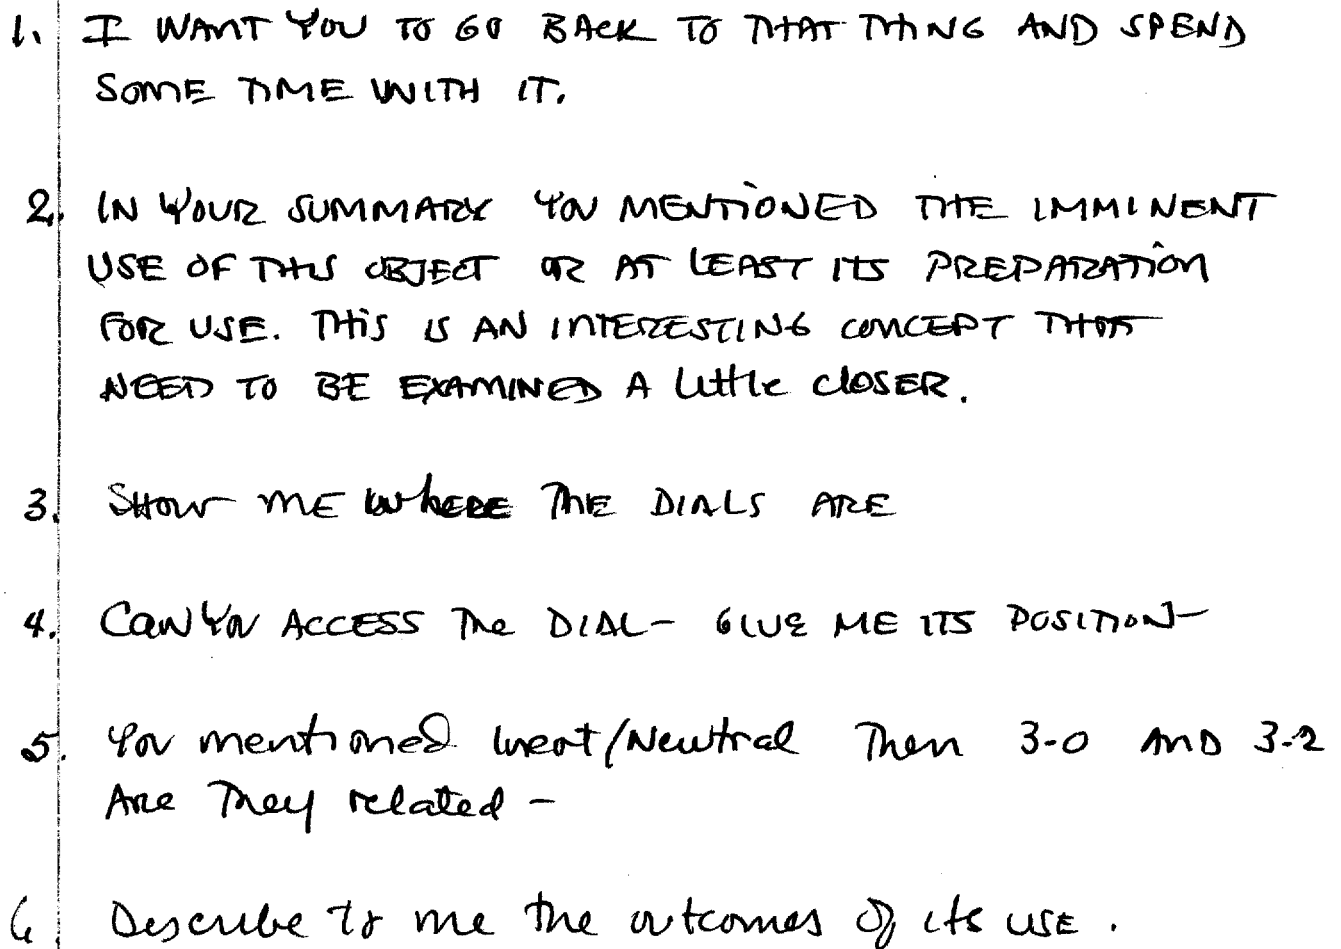 1. I WANT YOU TO GO BACK TO THAT THING AND SPEND
SOME TIME WITH IT.
2. IN YOUR SUMMARY YOU MENTIONED THE IMMINENT
USE OF THIS OBJECT OR AT LEAST ITS PREPARATION
FOR USE. THIS IS AN INTERESTING CONCEPT THAT
NEED TO BE EXAMINED A little closER.
3. SHOW ME WheRE THE DIALS ARE
4. CAN YOU ACCESS The DIAL - GIVE ME ITS POSITION -
5. You mentioned Inert/Neutral Then 3-0 AND 3-2
Are They related -
6. Describe to me the outcomes of its USE.